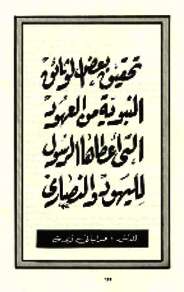 تحقيق بعض الوثائق
النبوية من العهود
التى أعطاها الرسول
لليهود والنصارى